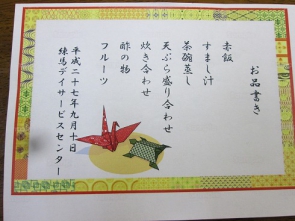 お品書き
赤飯
すまし汁
茶碗蒸し
天ぷら盛り合わせ
炊き合わせ
酢の物
フルーツ
平成二十七年九月十日
練馬デイサービスセンター